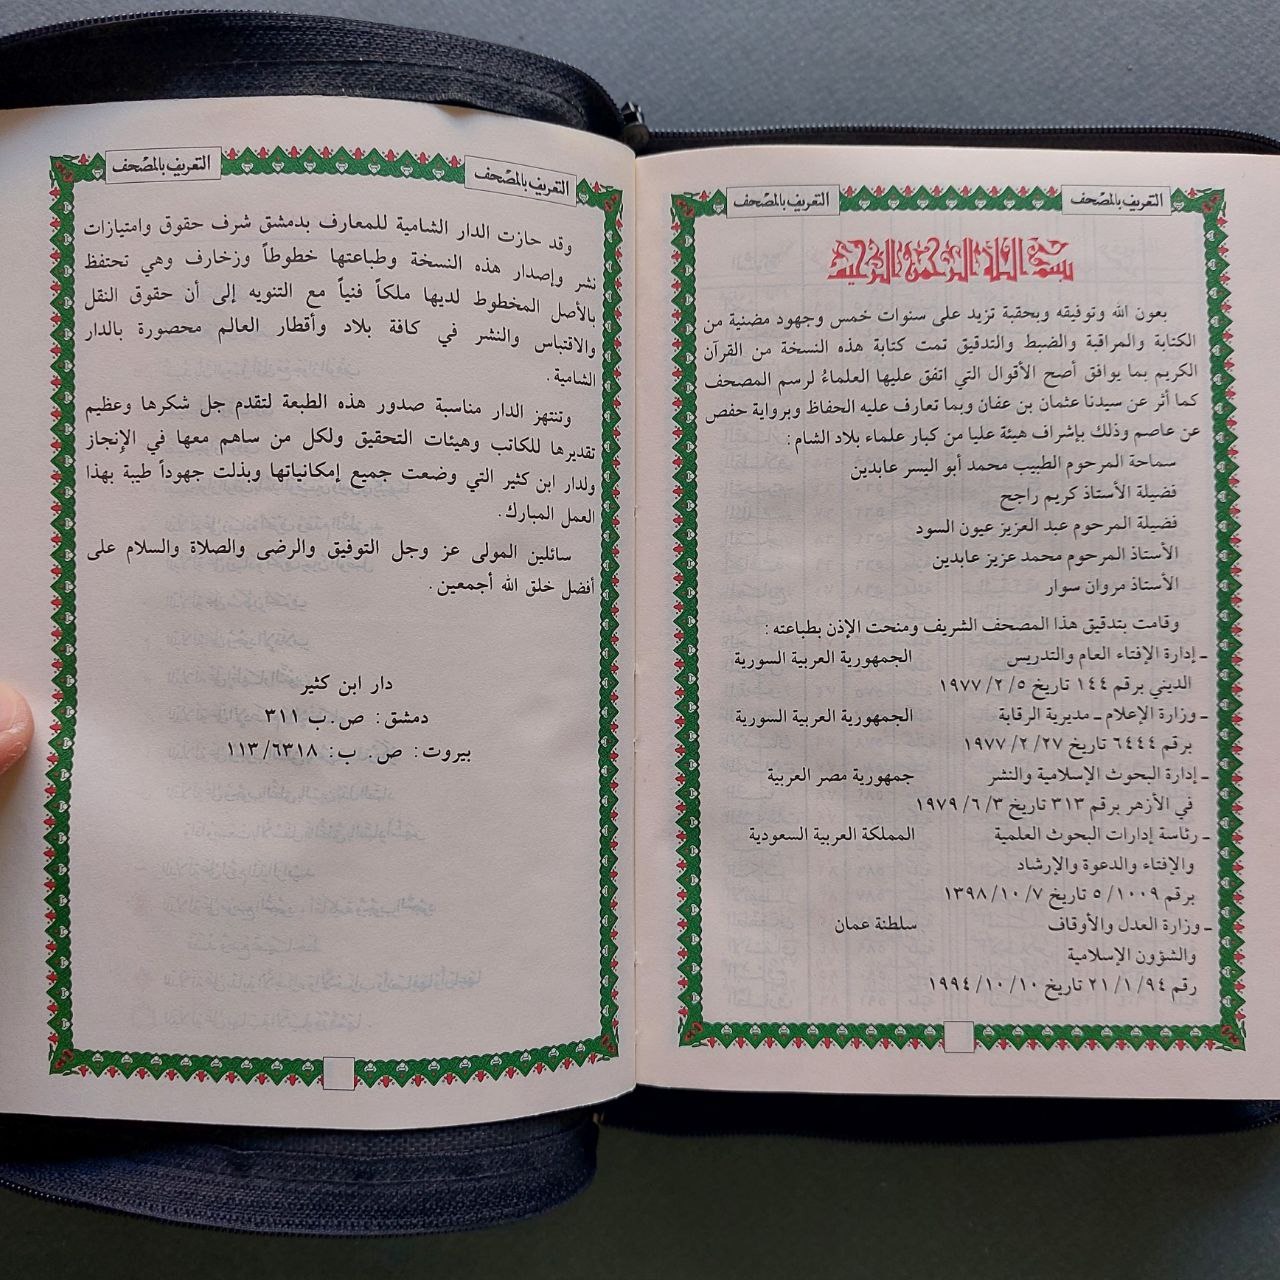 التعريف بالمصحف
التعريف بالمصحف
بسم الله الرحمن الرحيم
بعون الله وتوفيقه وبحقبة تزيد على سنوات خمس وجهود مضنية من
الكتابة والمراقبة والضبط والتدقيق تمت كتابة هذه النسخة من القرآن
الكريم بما يوافق أصح الأقوال التي اتفق عليها العلماءُ لرسم المصحف
كما أثر عن سيدنا عثمان بن عفان وبما تعارف عليه الحفاظ وبرواية حفص
عن عاصم وذلك بإشراف هيئة عليا من كبار علماء بلاد الشام:
سماحة المرحوم الطبيب محمد أبو اليسر عابدين
فضيلة الأستاذ كريم راجح
فضيلة المرحوم عبد العزيز عيون السود
الأستاذ المرحوم محمد عزيز عابدين
الأستاذ مروان سوار
وقامت بتدقيق هذا المصحف الشريف ومنحت الإذن بطباعته:
ـ إدارة الإفتاء العام والتدريس الجمهورية العربية السورية
الديني برقم ١٤٤ تاريخ ٥/ ٢/ ١٩٧٧
ـ وزارة الإعلام ـ مديرية الرقابة الجمهورية العربية السورية
برقم ٦٤٤٤ تاريخ ٢٧/ ٢/ ١٩٧٧
ـ إدارة البحوث الإسلامية والنشر جمهورية مصر العربية
في الأزهر برقم ٣١٣ تاريخ ٣/ ٦/ ١٩٧٩
ـ رئاسة إدارات البحوث العلمية المملكة العربية السعودية
والإفتاء والدعوة والإرشاد
برقم ١٠٠٩/ ٥ تاريخ ٧/ ١٠/ ١٣٩٨
ـ وزارة العدل والأوقاف سلطنة عمان
والشؤون الإسلامية
رقم ٩٤/ ١/ ٢١ تاريخ ١٠/ ١٠/ ١٩٩٤
التعريف بالمصحف
التعريف بالمصحف
وقد حازت الدار الشامية للمعارف بدمشق شرف حقوق وامتيازات
نشر وإصدار هذه النسخة وطباعتها خطوطاً وزخارف وهي تحتفظ
بالأصل المخطوط لديها ملكاً فنياً مع التنويه إلى أن حقوق النقل
والاقتباس والنشر في كافة بلاد وأقطار العالم محصورة بالدار
الشامية.
وتنتهز الدار مناسبة صدور هذه الطبعة لتقدم جل شكرها وعظيم
تقديرها للكاتب وهيئات التحقيق ولكل من ساهم معها في الإنجاز
ولدار ابن كثير التي وضعت جميع إمكانياتها وبذلت جهوداً طيبة بهذا
العمل المبارك.
سائلين المولى عز وجل التوفيق والرضى والصلاة والسلام على
أفضل خلق الله أجمعين.
دار ابن كثير
دمشق: ص.ب ٣١١
بيروت: ص. ب: ١١٣/٦٣١٨